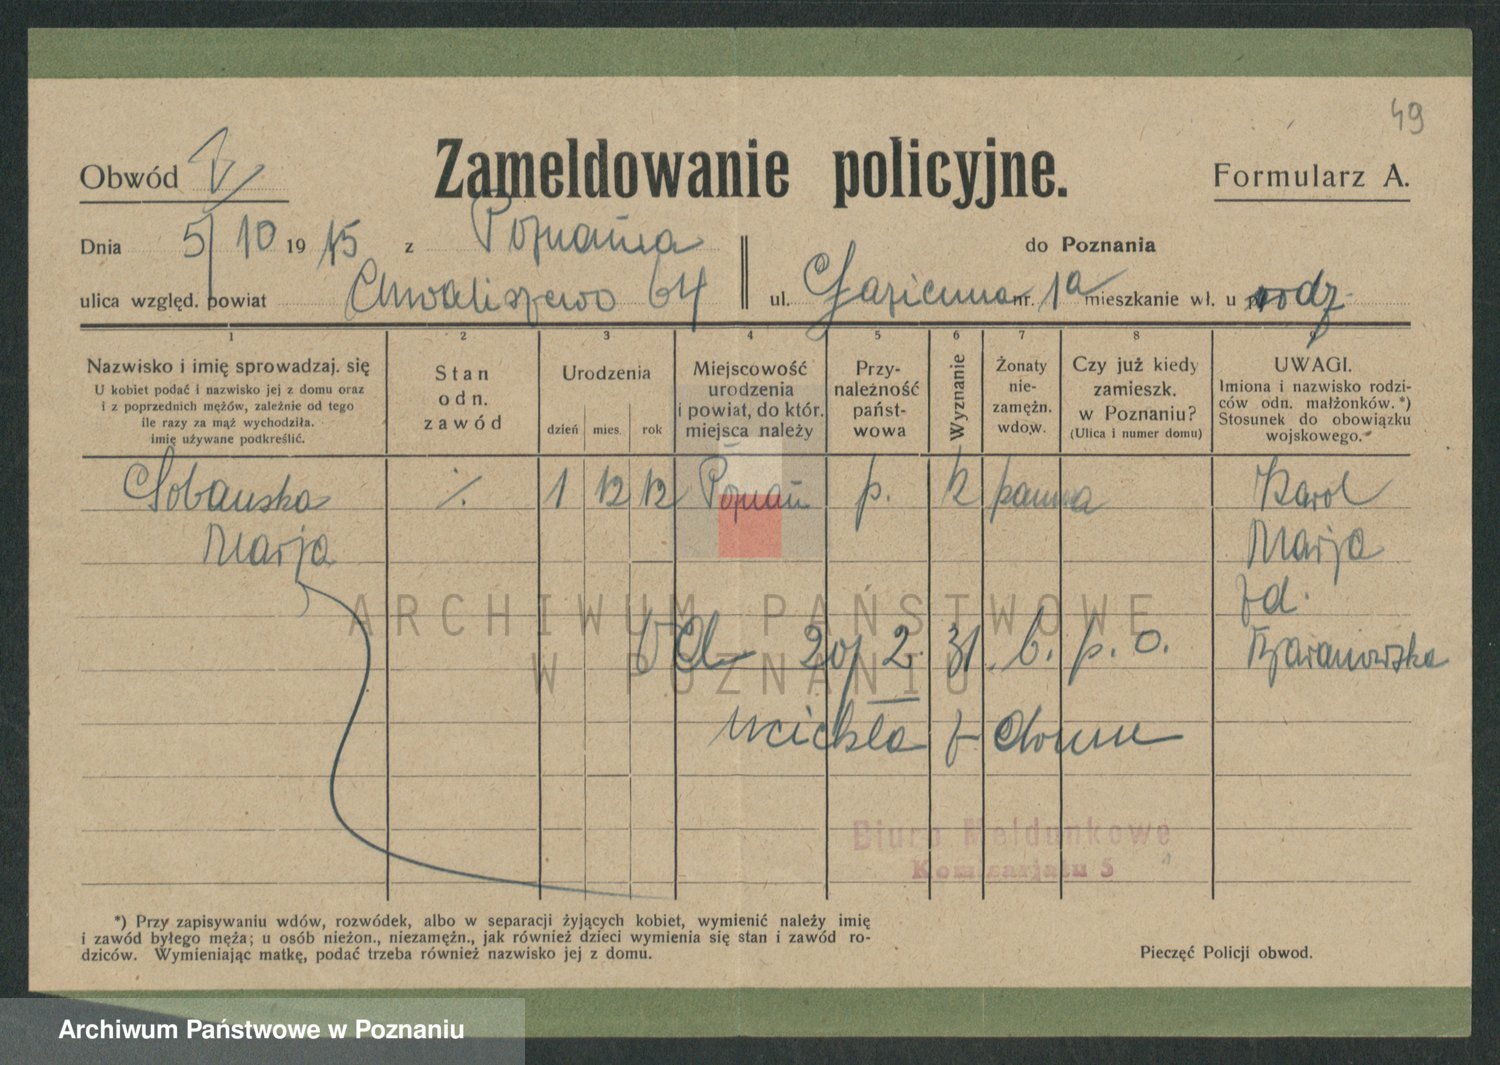 49
Obwód V
Zameldowanie policyjne.
Formularz A.
Dnia 5/10 19 z Poznania do Poznania
ulica względ. powiat Chwaliszewo 64 ul. nr. 1a mieszkanie wł. u rodz.
1 2 3 4 5 6 7 8 9
Nazwisko i imię sprowadzaj. się
U kobiet podać i nazwisko jej z domu oraz
i z poprzednich mężów, zależnie od tego
ile razy za mąż wychodziła.
imię używane podkreślić.
Stan
odn.
zawód
Urodzenia
dzień mies. rok
Miejscowość
urodzenia
i powiat, do któr.
miejsca należy
Przy-
należność
państ-
wowa
Wyznanie
Żonaty
nie-
zamężn.
wdow.
Czy już kiedy
zamieszk.
w Poznaniu?
(Ulica i numer domu)
UWAGI.
Imiona i nazwisko rodzi-
ców odn. małżonków.*)
Stosunek do obowiązku
wojskowego.
Sobańska ./. 1 12 12 Poznań p. k panna Karol
Marja Marja
zd.
Baranowska
20/2. 31. b. p. o.
uciekła z domu
ARCHIWUM PAŃSTWOWE
W POZNANIU
Biuro Meldunkowe
Komisarjatu 5
*) Przy zapisywaniu wdów, rozwódek, albo w separacji żyjących kobiet, wymienić należy imię
i zawód byłego męża; u osób nieżon., niezamężn., jak również dzieci wymienia się stan i zawód ro-
dziców. Wymieniając matkę, podać trzeba również nazwisko jej z domu.
Pieczęć Policji obwod.
Archiwum Państwowe w Poznaniu